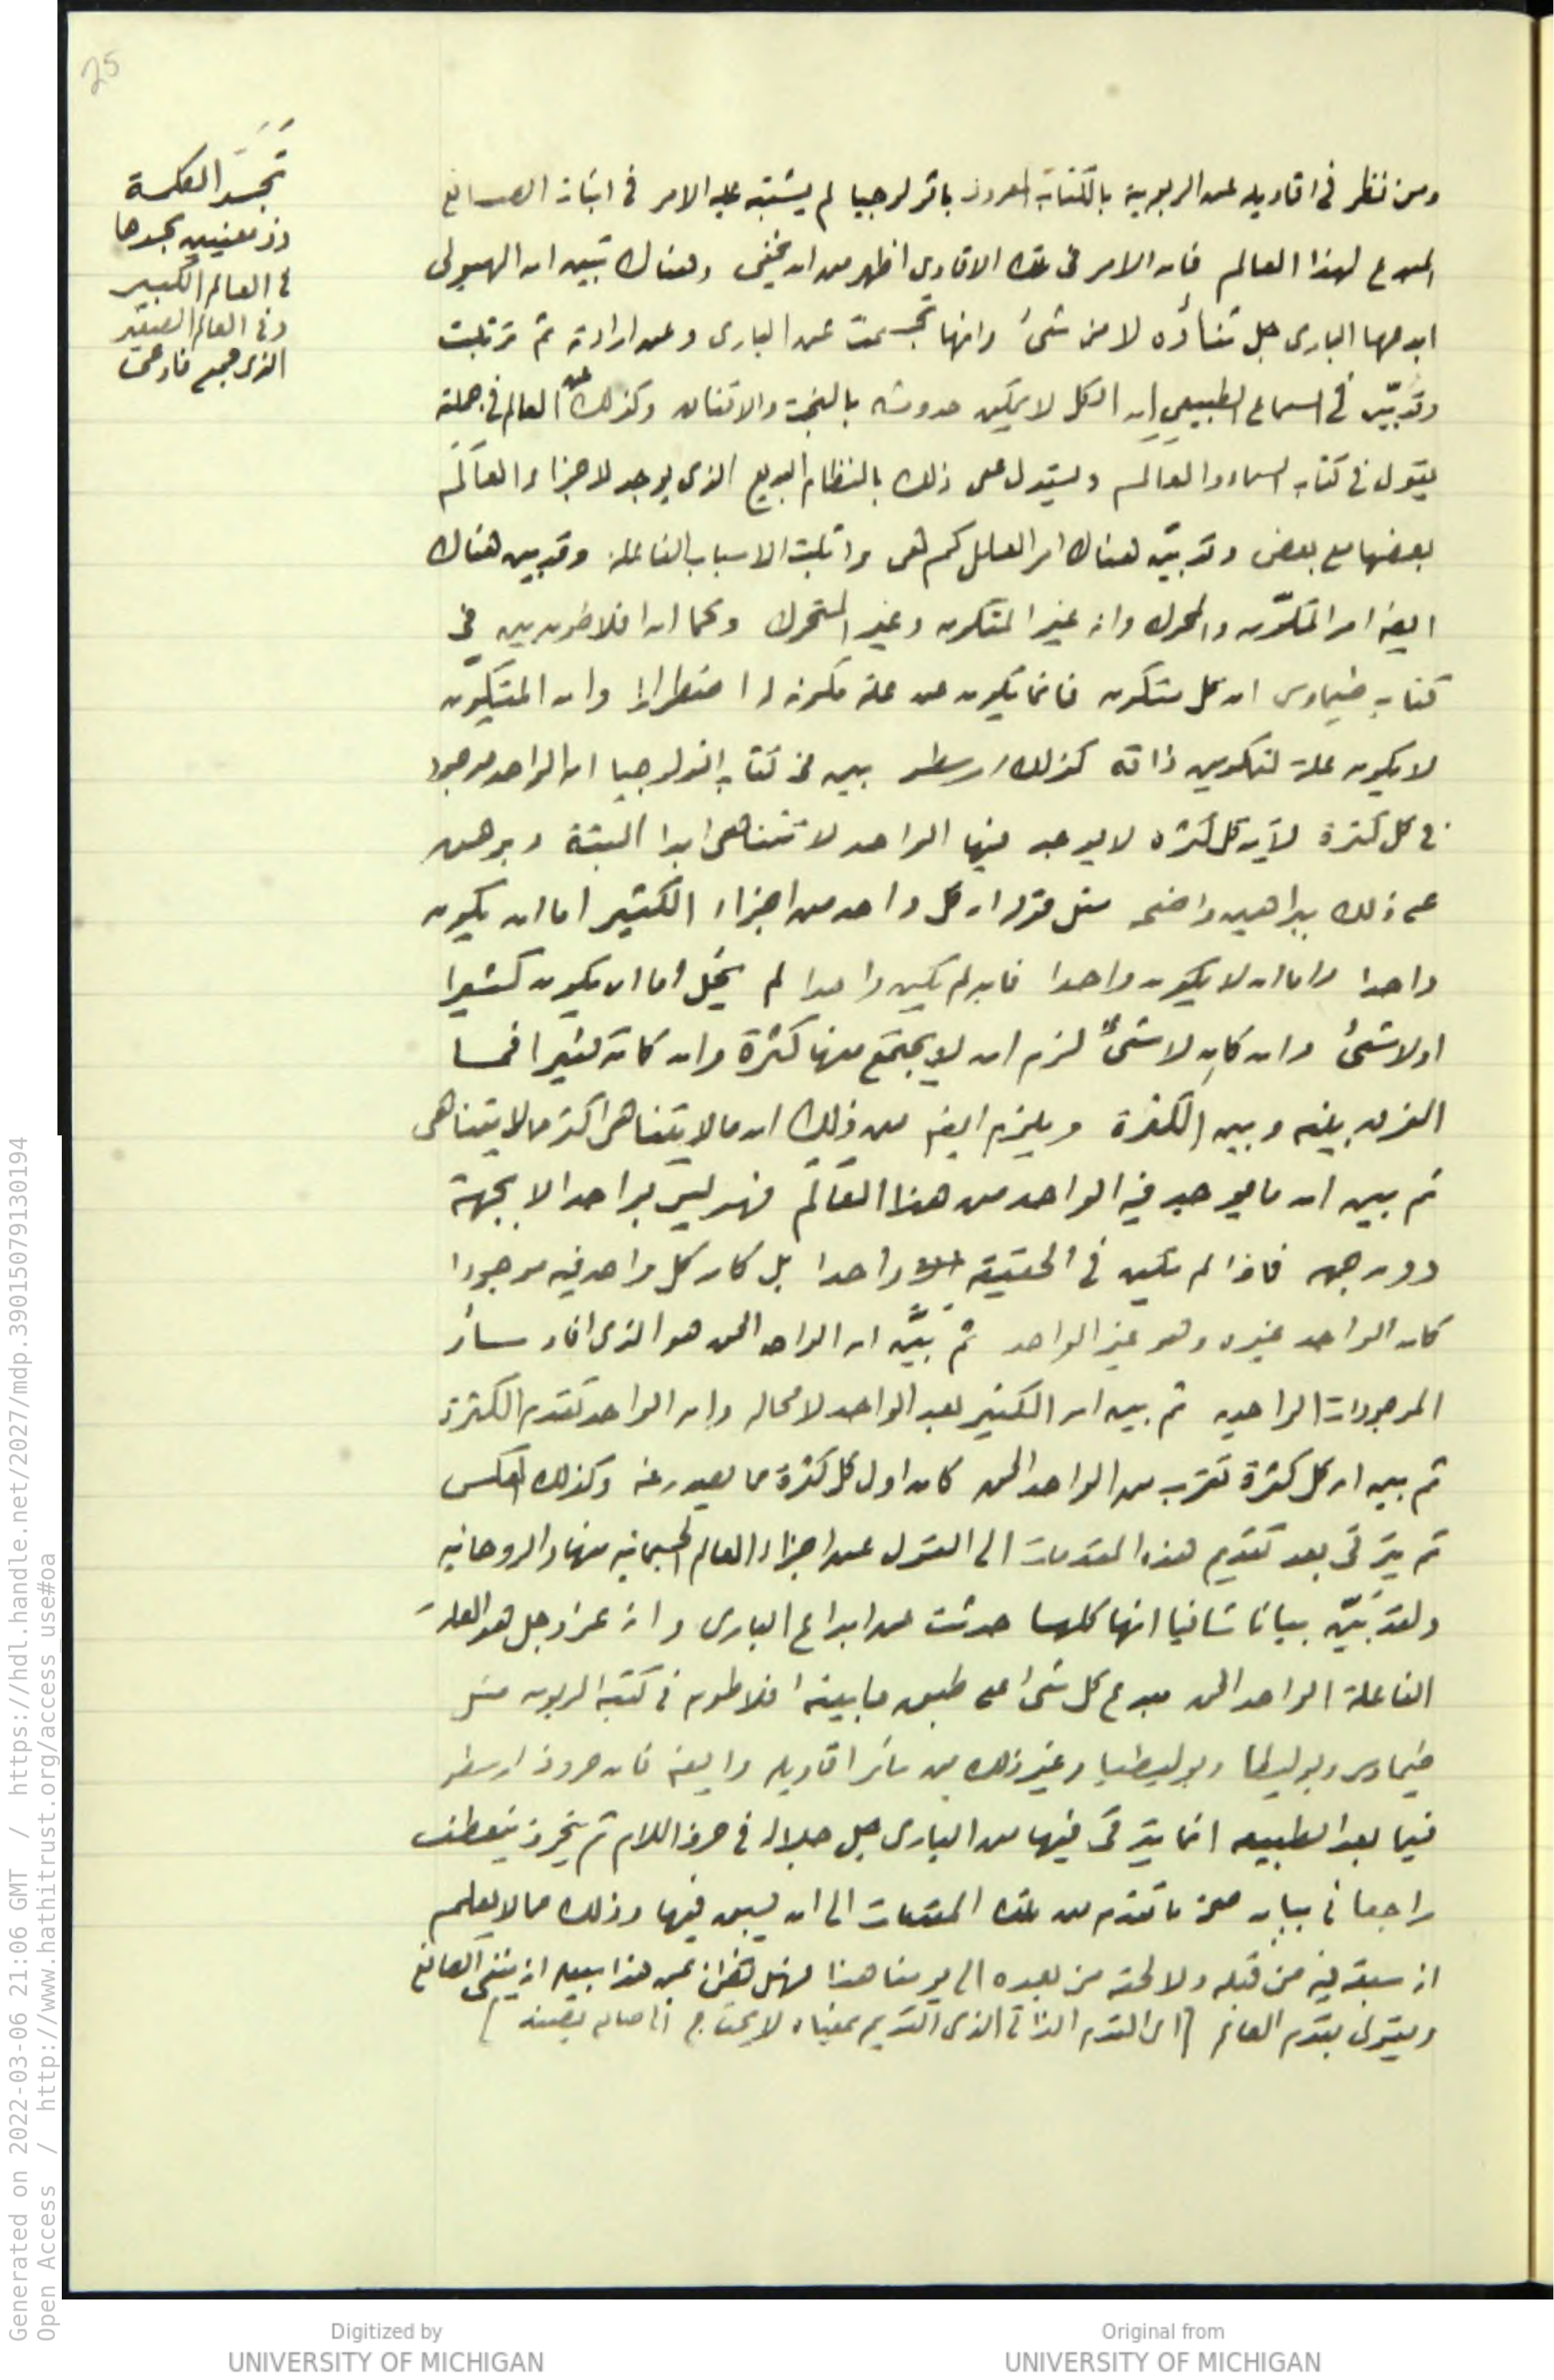 25
تَجَسَّد الحكمة
في العالم الكبير
وفي العالم الصغير
ومن نظر في اقاويله عن الربوبية بالكتاب المعروف باثولوجيا لم يشتبه عليه الامر في اثبات الصانع
المبدع لهذا العالم فان الامر في تلك الاقاويل اظهر من ان يخفى وهناك تبين ان الهيولى
ابدعها البارى جل ثناؤه لا من شئ وانها تجسمت عن البارى وعن ارادته ثم ترتبت
وقد بيّن في السماع الطبيعي ان الكل لا يمكن حدوثه بالبخت والاتفاق وكذلك عن العالم في جملته
يقول في كتاب السماء والعالم ويستدل على ذلك بالنظام البديع الذى يوجد لاجزاء العالم
بعضها مع بعض وقد بيّن هناك امر العلل كم هى واثبت الاسباب الفاعلة وقد بين هناك
ايضا امر المكوّن والمحرك وانه غير المتكون وغير المتحرك وكما ان افلاطون بين في
كتاب طيماوس ان كل متكون فانما يكون عن علة مكونة له اضطرارا وان المتكون
لا يكون علة لتكوين ذاته كذلك ارسطو بين في كتاب اثولوجيا ان الواحد موجود
في كل كثرة لأن كل كثرة لا يوجد فيها الواحد لا تتناهى ابدا البتة وبرهن
على ذلك ببراهين واضحه مثل قوله ان كل واحد من اجزاء الكثير اما ان يكون
واحدا واما ان لا يكون واحدا فان لم يكن واحدا لم يخل اما ان يكون كثيرا
او لا شئ وان كان لا شئ لزم ان لا يجتمع منها كثرة وان كان كثيرا فما
الفرق بينه وبين الكثرة ويلزم ايضا من ذلك ان ما لا يتناهى اكثر مما لا يتناهى
ثم بين ان ما يوجد فيه الواحد من هذا العالم فهو ليس بواحد الا بجهة
دون جهه فاذا لم يكن في الحقيقة واحدا بل كان كل واحد فيه موجودا
كان الواحد غيره وهو غير الواحد ثم بيَّن ان الواحد الحق هو الذى افاد سائر
الموجودات الواحديه ثم بين ان الكثير بعد الواحد لا محاله وان الواحد تقدم الكثرة
ثم بين ان كل كثرة تقرب من الواحد الحق كان اول كل كثرة مما يبعد عنه وكذلك العكس
ثم يترقى بعد تقديم هذه المقدمات الى القول عن اجزاء العالم الجسمانيه منها والروحانيه
ولقد بَيَّن بيانا شافيا انها كلها حدثت عن ابداع البارى وانه عز وجل هو العلة
الفاعلة الواحد الحق مبدع كل شئ على طبق ما بينه افلاطون في كتبه الربوبيه مثل
طيماوس وبوليطيا وغير ذلك من سائر اقاويله وايضا فان حروف ارسطو
فيما بعد الطبيعه انما يترقى فيها من البارى جل جلاله في حرف اللام ثم ينحرف ينعطف
راجعا في بيان صحة ما تقدم من تلك المقدمات الى ان يسبق فيها وذلك مما لا يعلم
انه سبقه فيه من قبله ولا لحقه من بعده الى يومنا هذا فهل تظن ان من هذا سبيله انه ينفى الصانع
ويقول بقدم العالم [اى القدم الذاتى الذى القديم بمعناه لا يحتاج الى صانع يصنعه]